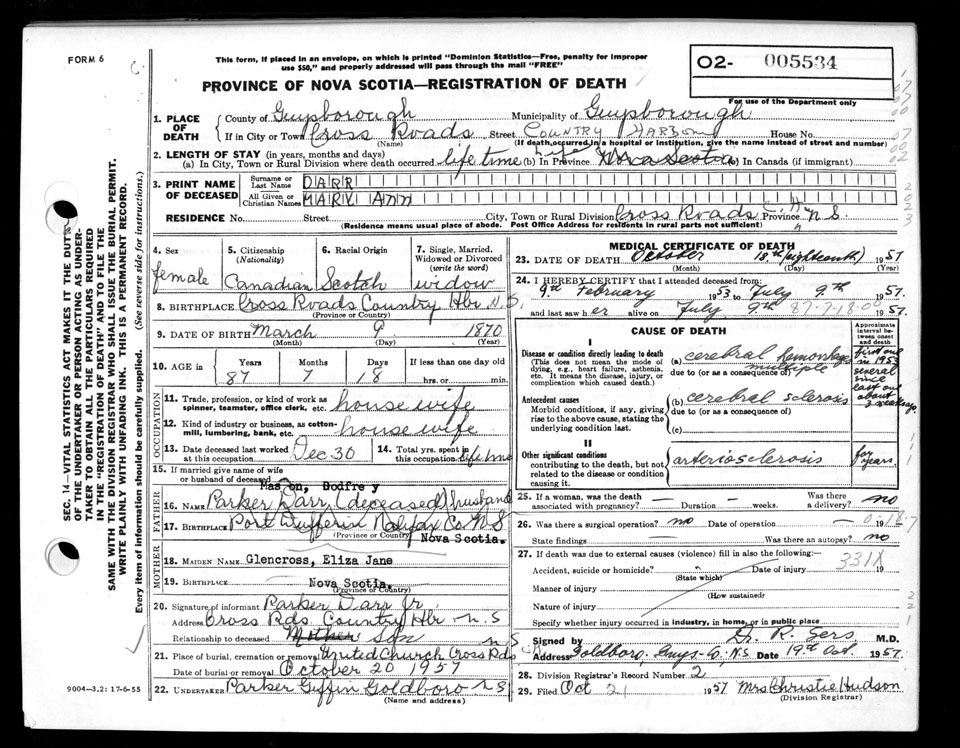 FORM 6
This form, if placed in an envelope, on which is printed "Dominion Statistics—Free, penalty for improper
use $50," and properly addressed will pass through the mail "FREE"
PROVINCE OF NOVA SCOTIA—REGISTRATION OF DEATH
02- 005534
For use of the Department only
1. PLACE OF DEATH
County of Guysborough Municipality of Guysborough
If in City or Town Cross Roads Street Country Harbour House No.
(Name) (If death occurred in a hospital or institution, give the name instead of street and number)
2. LENGTH OF STAY (in years, months and days)
(a) In City, Town or Rural Division where death occurred life time (b) In Province Life Nova Scotia (c) In Canada (if immigrant)
3. PRINT NAME OF DECEASED
Surname or Last Name DARR
All Given or Christian Names MARY Ann
RESIDENCE No. Street City, Town or Rural Division Cross Roads C.H. Province N S
(Residence means usual place of abode. Post Office Address for residents in rural parts not sufficient)
4. Sex female
5. Citizenship (Nationality) Canadian
6. Racial Origin Scotch
7. Single, Married, Widowed or Divorced (write the word) widow
8. BIRTHPLACE Cross Roads Country Hbr N.S.
(Province or Country)
9. DATE OF BIRTH March 9 1870
(Month) (Day) (Year)
10. AGE in Years 87 Months 7 Days 18 If less than one day old hrs. or min.
OCCUPATION
11. Trade, profession, or kind of work as spinner, teamster, office clerk, etc. house wife
12. Kind of industry or business, as cotton-mill, lumbering, bank, etc. house wife
13. Date deceased last worked at this occupation Dec 30
14. Total yrs. spent in this occupation life time
15. If married give name of wife or husband of deceased
FATHER
Mason, Godfrey
16. NAME Parker Darr (deceased) husband
17. BIRTHPLACE Port Dufferin Halifax Co. N S
(Province or Country) Nova Scotia.
MOTHER
18. MAIDEN NAME Glencross, Eliza Jane
19. BIRTHPLACE Nova Scotia.
(Province or Country)
20. Signature of informant Parker Darr Jr.
Address Cross Rds Country Hbr N.S
Relationship to deceased Mother Son N S
21. Place of burial, cremation or removal United Church Cross Rds
Date of burial or removal October 20 1957
22. UNDERTAKER Parker Giffin Goldboro N S
(Name and address)
9004—3.2: 17-6-55
MEDICAL CERTIFICATE OF DEATH
23. DATE OF DEATH October 18th (eighteenth) 1957
(Month) (Day) (Year)
24. I HEREBY CERTIFY that I attended deceased from
9th February 1953 to July 9th 1957.
and last saw her alive on July 9th 87-7-18-0 1957.
CAUSE OF DEATH
Approximate interval between onset and death
I
Disease or condition directly leading to death
(This does not mean the mode of dying, e.g., heart failure, asthenia, etc. It means the disease, injury, or complication which caused death.)
(a) cerebral hemorrhage
multiple
due to (or as a consequence of)
first one in 1953
several since
last one about
Antecedent causes
Morbid conditions, if any, giving rise to the above cause, stating the underlying condition last.
(b) cerebral sclerosis
due to (or as a consequence of)
(c)
II
Other significant conditions
contributing to the death, but not related to the disease or condition causing it.
arteriosclerosis
for years
25. If a woman, was the death associated with pregnancy? — Duration — weeks. Was there a delivery? no
26. Was there a surgical operation? no Date of operation — 19
State findings — Was there an autopsy? no
27. If death was due to external causes (violence) fill in also the following:—
Accident, suicide or homicide? Date of injury 331X 19
(State which)
Manner of injury
(How sustained)
Nature of injury
Specify whether injury occurred in industry, in home, or in public place
Signed by Dr. R. Sers M.D.
Address Goldboro, Guys. Co. N.S Date 19th Oct. 1957.
28. Division Registrar's Record Number 2
29. Filed Oct 21 1957 Mrs Christie Hudson
(Division Registrar)
SEC. 14—VITAL STATISTICS ACT MAKES IT THE DUTY
OF THE UNDERTAKER OR PERSON ACTING AS UNDER-
TAKER TO OBTAIN ALL THE PARTICULARS REQUIRED
IN THE "REGISTRATION OF DEATH" AND TO FILE THE
SAME WITH THE DIVISION REGISTRAR WHO SHALL ISSUE THE BURIAL PERMIT.
WRITE PLAINLY WITH UNFADING INK. THIS IS A PERMANENT RECORD.
Every item of information should be carefully supplied. (See reverse side for instructions.)